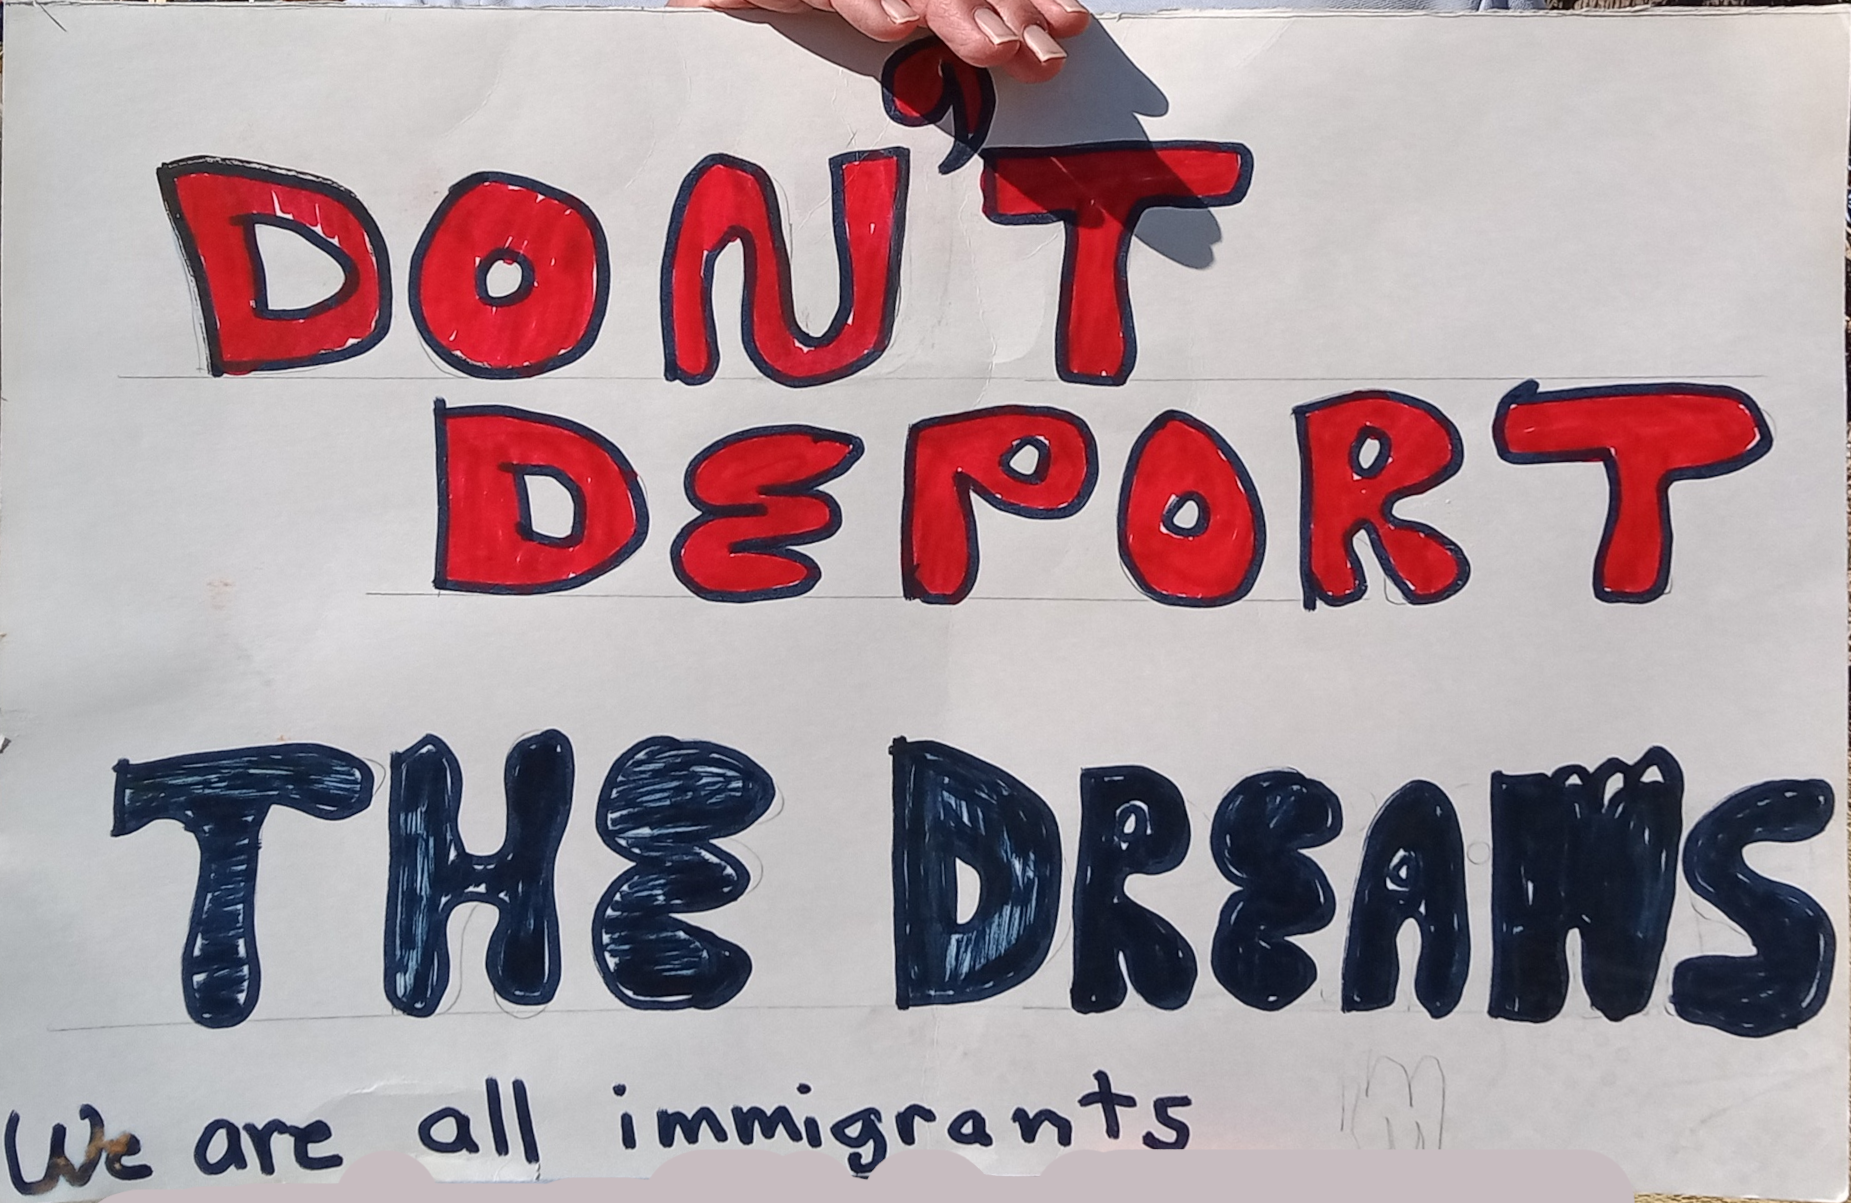 DON'T
DEPORT
THE DREAMS
We are all immigrants